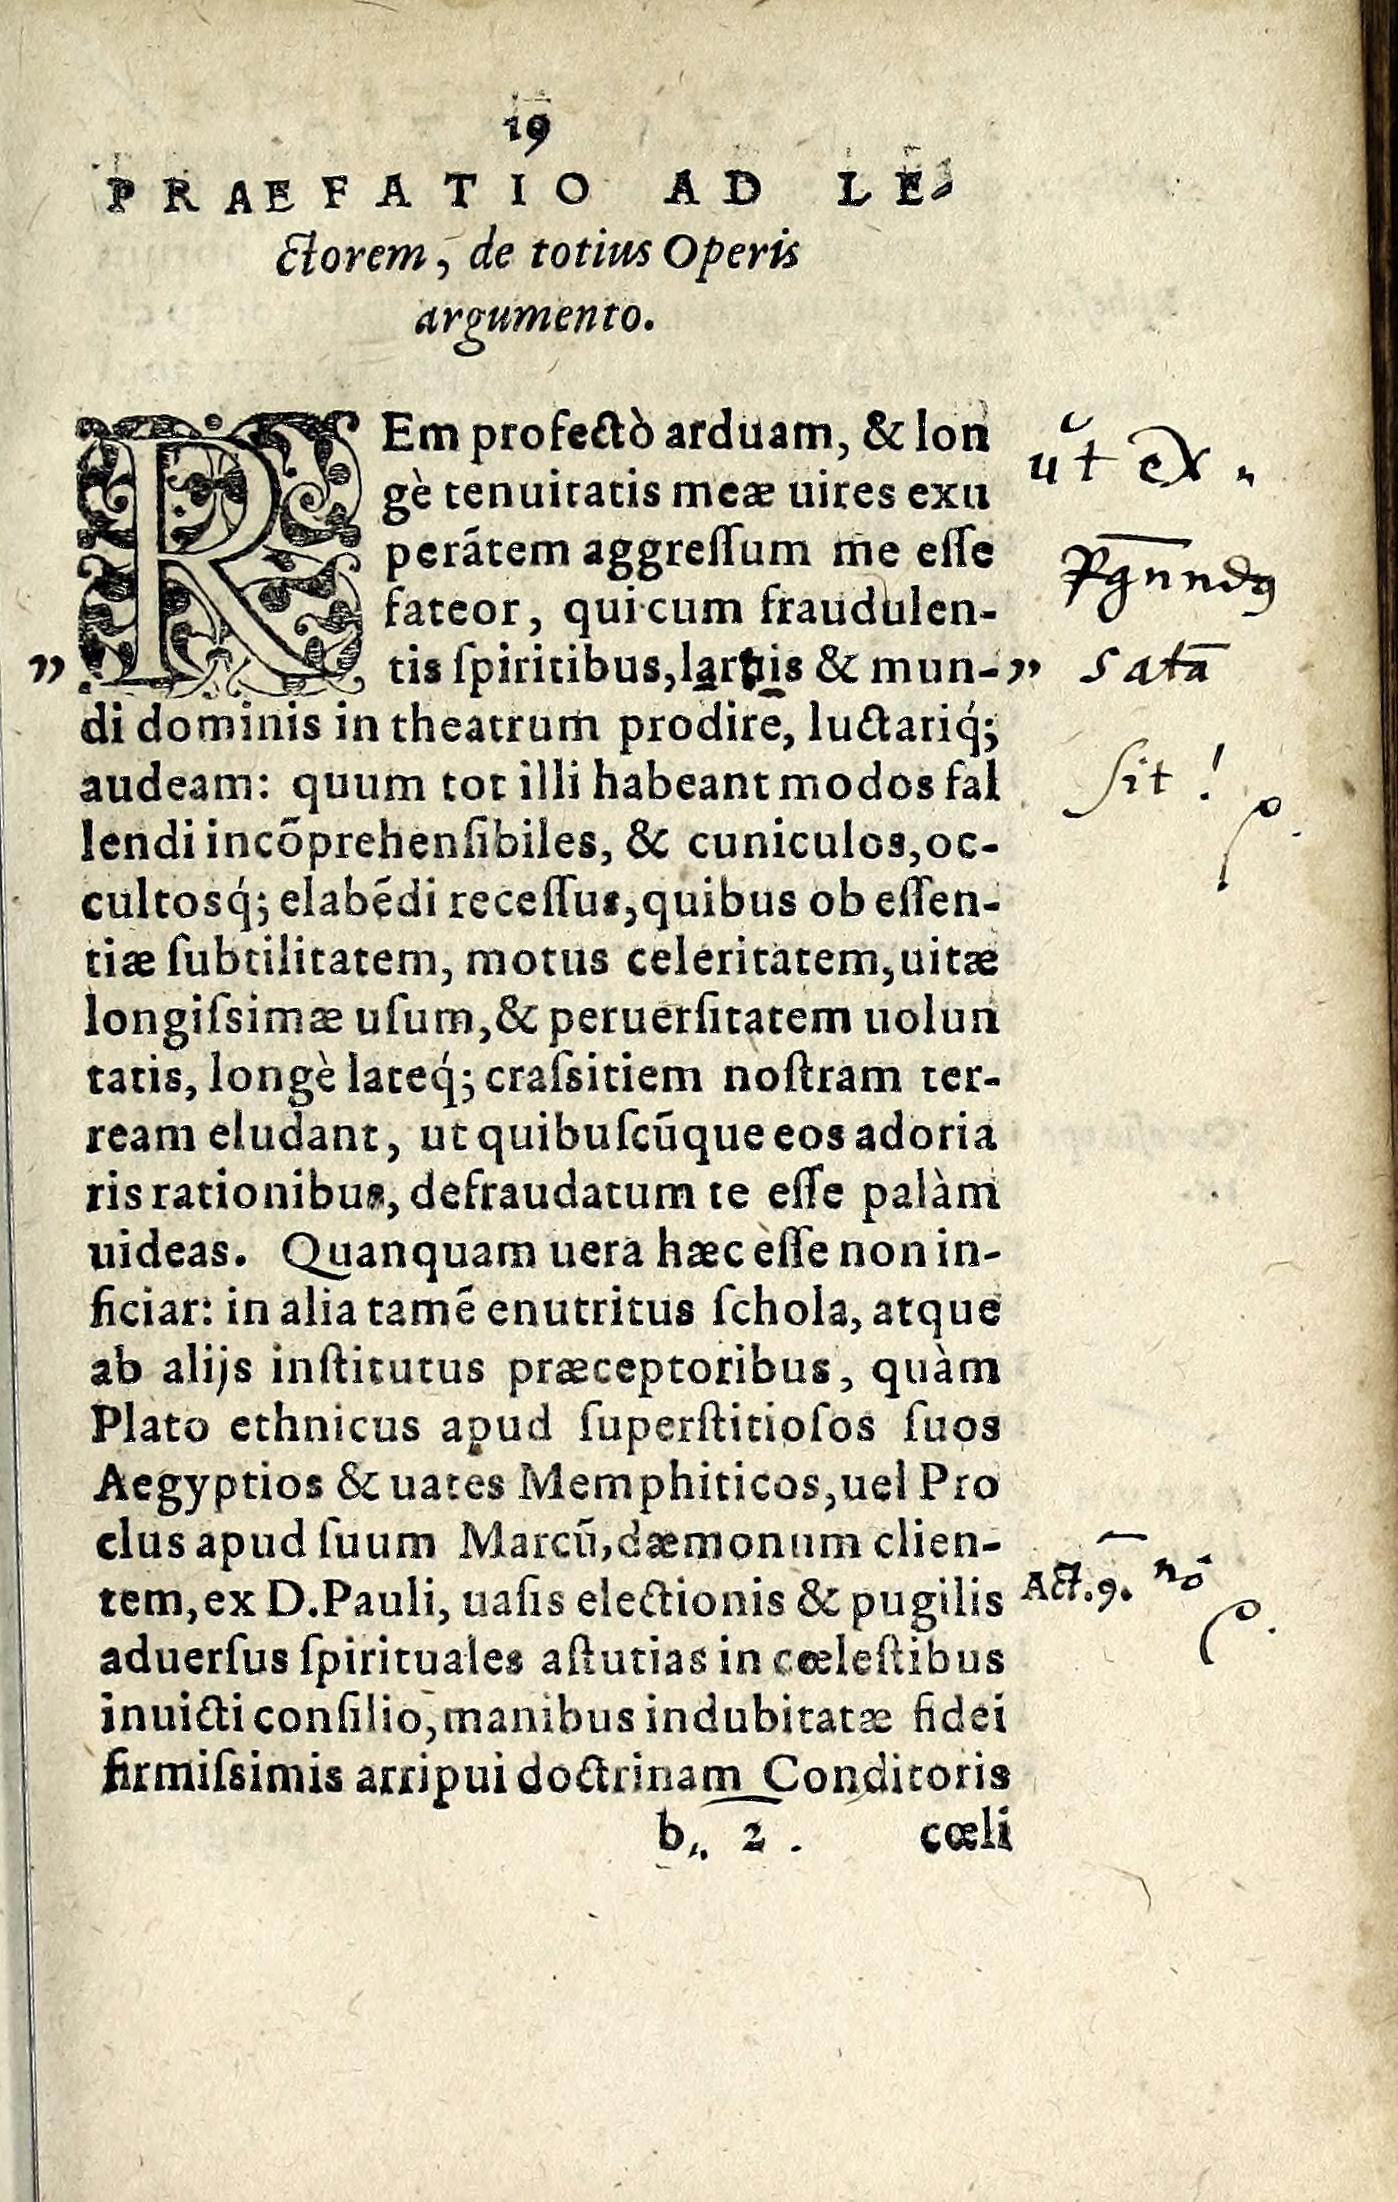 19
PRAEFATIO AD LE-
ctorem, de totius Operis
argumento.
REm profectò arduam, & lon
gè tenuitatis meæ uires exu
perãtem aggreſſum me eſſe
fateor, qui cum fraudulen-
tis ſpiritibus, laruis & mun-
di dominis in theatrum prodire, luctariq́;
audeam: quum tot illi habeant modos fal
lendi incõprehenſibiles, & cuniculos, oc-
cultosq́; elabẽdi receſſus, quibus ob eſſen-
tiæ ſubtilitatem, motus celeritatem, uitæ
longiſsimæ uſum, & peruerſitatem uolun
tatis, longè lateq́; craſsitiem noſtram ter-
ream eludant, ut quibuſcũque eos adoria
ris rationibus, defraudatum te eſſe palàm
uideas. Quanquam uera hæc eſſe non in-
ficiar: in alia tamẽ enutritus ſchola, atque
ab alijs inſtitutus præceptoribus, quàm
Plato ethnicus apud ſuperſtitioſos ſuos
Aegyptios & uates Memphiticos, uel Pro
clus apud ſuum Marcũ, dæmonum clien-
tem, ex D. Pauli, uaſis electionis & pugilis
aduerſus ſpirituales aſtutias in cœleſtibus
inuicti conſilio, manibus indubitatæ fidei
firmiſsimis arripui doctrinam Conditoris
b 2 cœli
ut ex
satã
ſit!
Act. 9. nõ